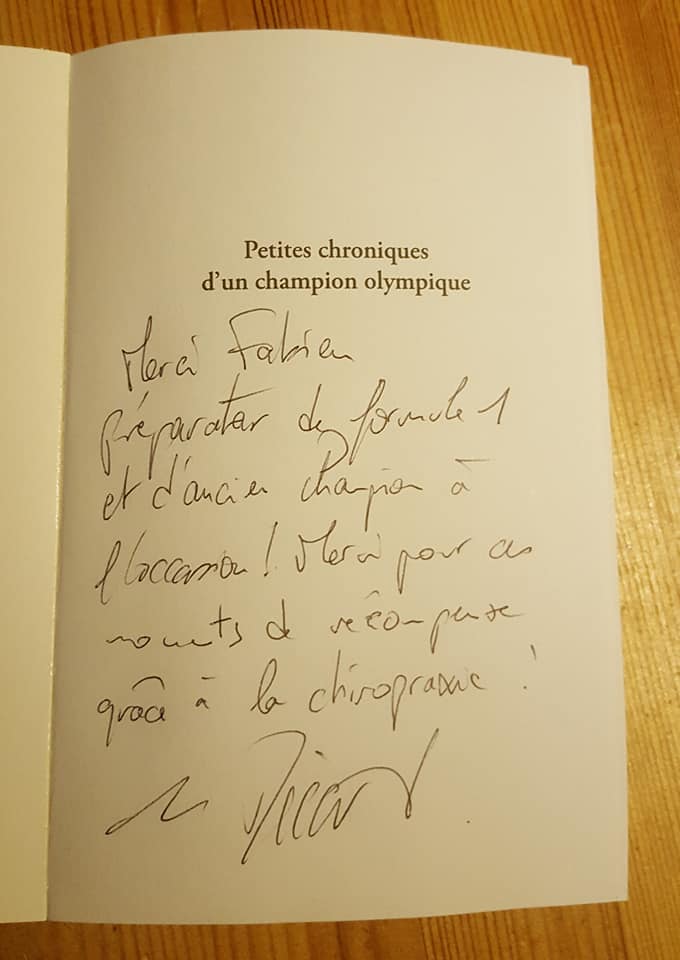 Petites chroniques
d'un champion olympique
Merci Fabien
préparateur de formule 1
et d'ancien champion à
l'occasion ! Merci pour ces
moments de récompense
grâce à la chiropraxie !